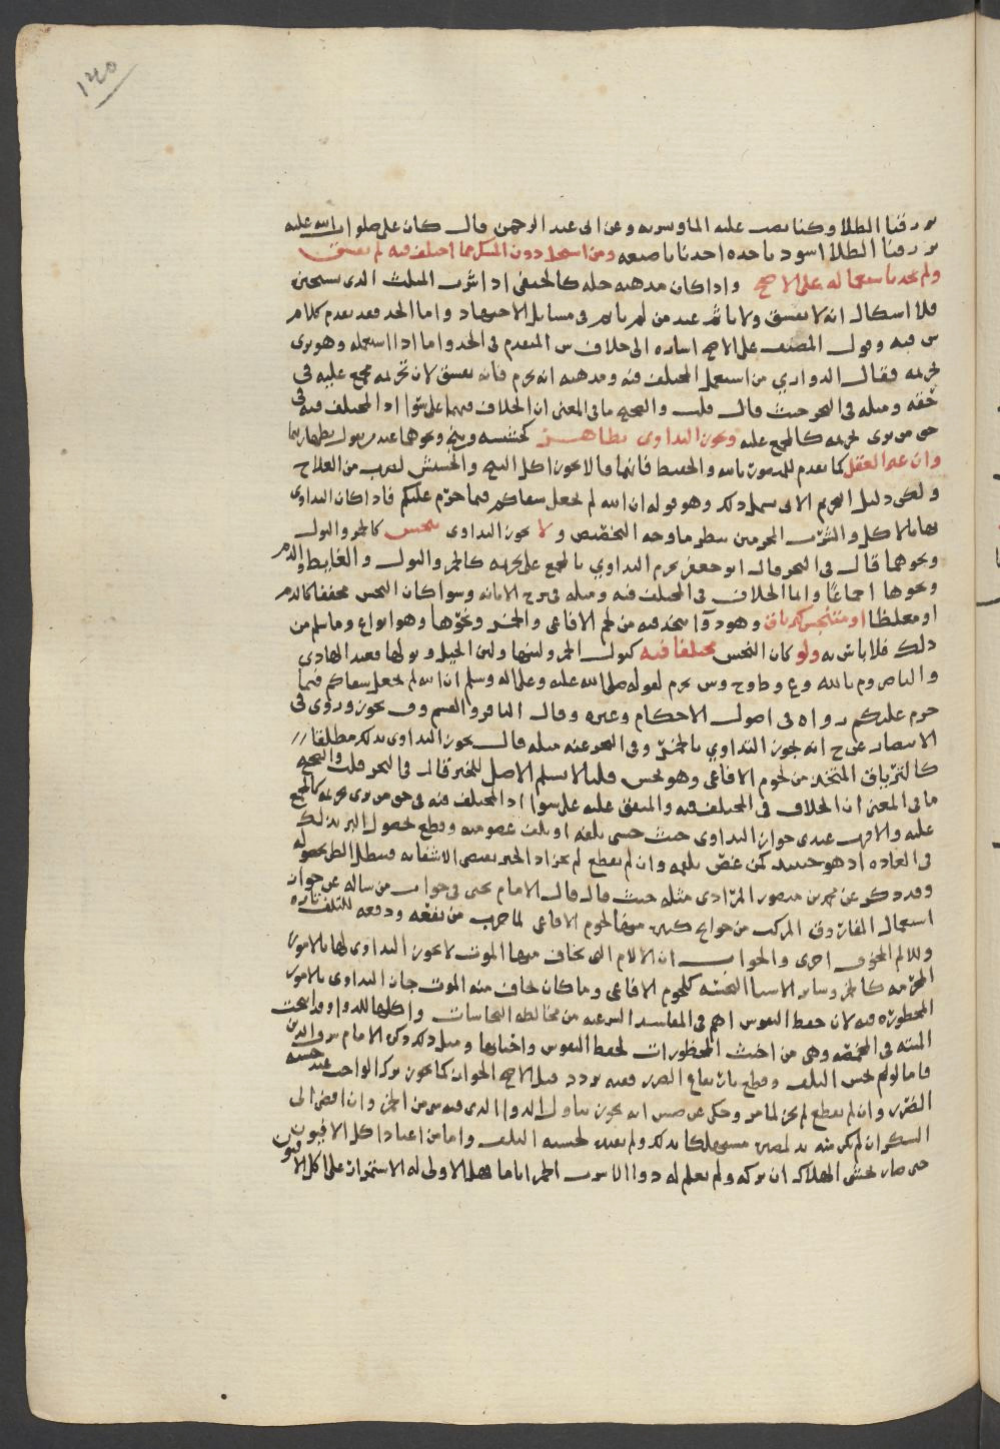 ١٢٥
يرزقنا الطلا وكنا نصب عليه الماء ونشربه وعن ابى عبد الرحمن قال كان على صلوات الله عليه
يرزقنا الطلا اسود ياخذه احدنا باصبعه ومن استحل دون المسكر مما اختلف فيه لم يفسق
ولم يحد باستعماله على الاصح واذا كان مذهبه حله كالحنفى اذا شرب المثلث الذى يستحله
فلا اشكال انه لا يفسق ولا ياثم عند من لم ياثم فى مسايل الاجتهاد واما الحد فقد تقدم كلام
فيه وقول المصنف على الاصح اشاره الى خلاف المتقدم فى الحد واما اذا استعمله وهو يرى
تحريمه فقال الدوارى من استعمل المختلف فيه ومذهبه انه يحرم فانه يفسق لان تحريمه مجمع عليه فى
حقه ومثله فى البحر حيث قال قلت والصحيح ما فى المعنى ان الخلاف فيهما على سوا اذ المختلف فيه فى
حق من يرى تحريمه كالمجمع عليه ويجوز التداوى بطاهر كخنفسه وبنج ونحوها عند من يقول بطهارتهما
وان غير العقل كما تقدم فانهما قالا يجوز اكل البنج والحشيش لضرب من العلاج
ولكن دليل التحريم الاتى يشمل ذلك وهو قوله ان الله لم يجعل شفاكم فيما حرم عليكم فاذا كان التداوى
بها بالاكل والشرب المحرمين ينظر ما وجه التخصيص ولا يجوز التداوى بنجس كالخمر والبول
ونحوهما قال فى البحر قال ابو جعفر يحرم التداوى بالمجمع على تحريمه كالخمر والبول والغايط والدم
ونحوها اجماعًا وانما الخلاف فى المختلف فيه ومثله فى شرح الابانه وسوا كان النجس مخففا كالدم
او مغلظا او متنجس كترياق وهو دوآ يتخذ فيه من لحم الافاعى والخمر ونحوها وهو انواع وما سلم من
ذلك فلا باس به ولو كان النجس مختلفا فيه كبول الحمر ولبنها ولبن الخيل وبولها فعند الهادى
والناصر وم بالله وح يحرم لقوله صلى الله عليه وعلى اله وسلم ان الله لم يجعل شفاكم فيما
حرم عليكم رواه فى اصول الاحكام وغيره وقال الباقر والقسم وف يجوز وروى فى
الانتصار عن ح انه يجوز التداوى بالخمر وفى البحر عنه مثله قال يجوز التداوى بذلك مطلقا
كالترياق المتخذ من لحوم الافاعى وهو نجس قلنا لا نسلم الاصل للخبر قال فى البحر قلت والصحيح
ما فى المعنى ان الخلاف فى المختلف فيه والمتفق عليه على سوا اذ المختلف فيه فى حق من يرى تحريمه كالمجمع
عليه والاقرب عندى جواز التداوى حيث خشى تلفه او تلف عضو منه وقطع بحصول البر بذلك
فى العاده اذ هو حينيذ كمن غص بلقمه وان لم يقطع لم يجز اذ الخبر يقتضى الاشفا به فيبطل الظن بحصوله
وقد ذكر عن محمد بن منصور المرادى مثله حيث قال قال الامام يحيى فى جواب من ساله عن جواز
استعمال الفاروق المركب من حوايج كثيره منها لحوم الافاعى لما جرب من نفعه ودفعه للتلف تاره
وللالم المخوف اخرى والجواب ان الالام التى يخاف منها الموت لا يجوز التداوى لها بالامور
المحرمه كالخمر وساير الاشيا النجسه كلحوم الافاعى وما كان يخاف منه الموت جاز التداوى بالامور
المحظوره فيه لان حفظ النفوس اهم فى المقاصد الشرعيه من مخالطه النجاسات واكلها للدوا وقد ابيحت
الميته فى المخمصه وهى من اخبث المحظورات لحفظ النفوس واحيايها ومثل ذلك ذكر الامام شرف الدين
فاما لو لم يخش التلف وقطع بارتفاع الضرر ففيه تردد قيل الاصح الجواز كما يجوز ترك الواجب عند خشيه
الضرر وان لم يقطع لم يجز لما مر وحكى انه يجوز تناول الدوا الذى فيه من الخمر وان افضى الى
السكر ان لم يكن منه بد لمصيره مستهلكا بذلك ولم يقيد بخشيه التلف واما من اعتاد اكل الافيون
حتى صار يخشى الهلاك ان تركه ولم يعلم له دوا الا شرب الخمر اياما فهل الاولى له الاستمرار على اكل الافيون